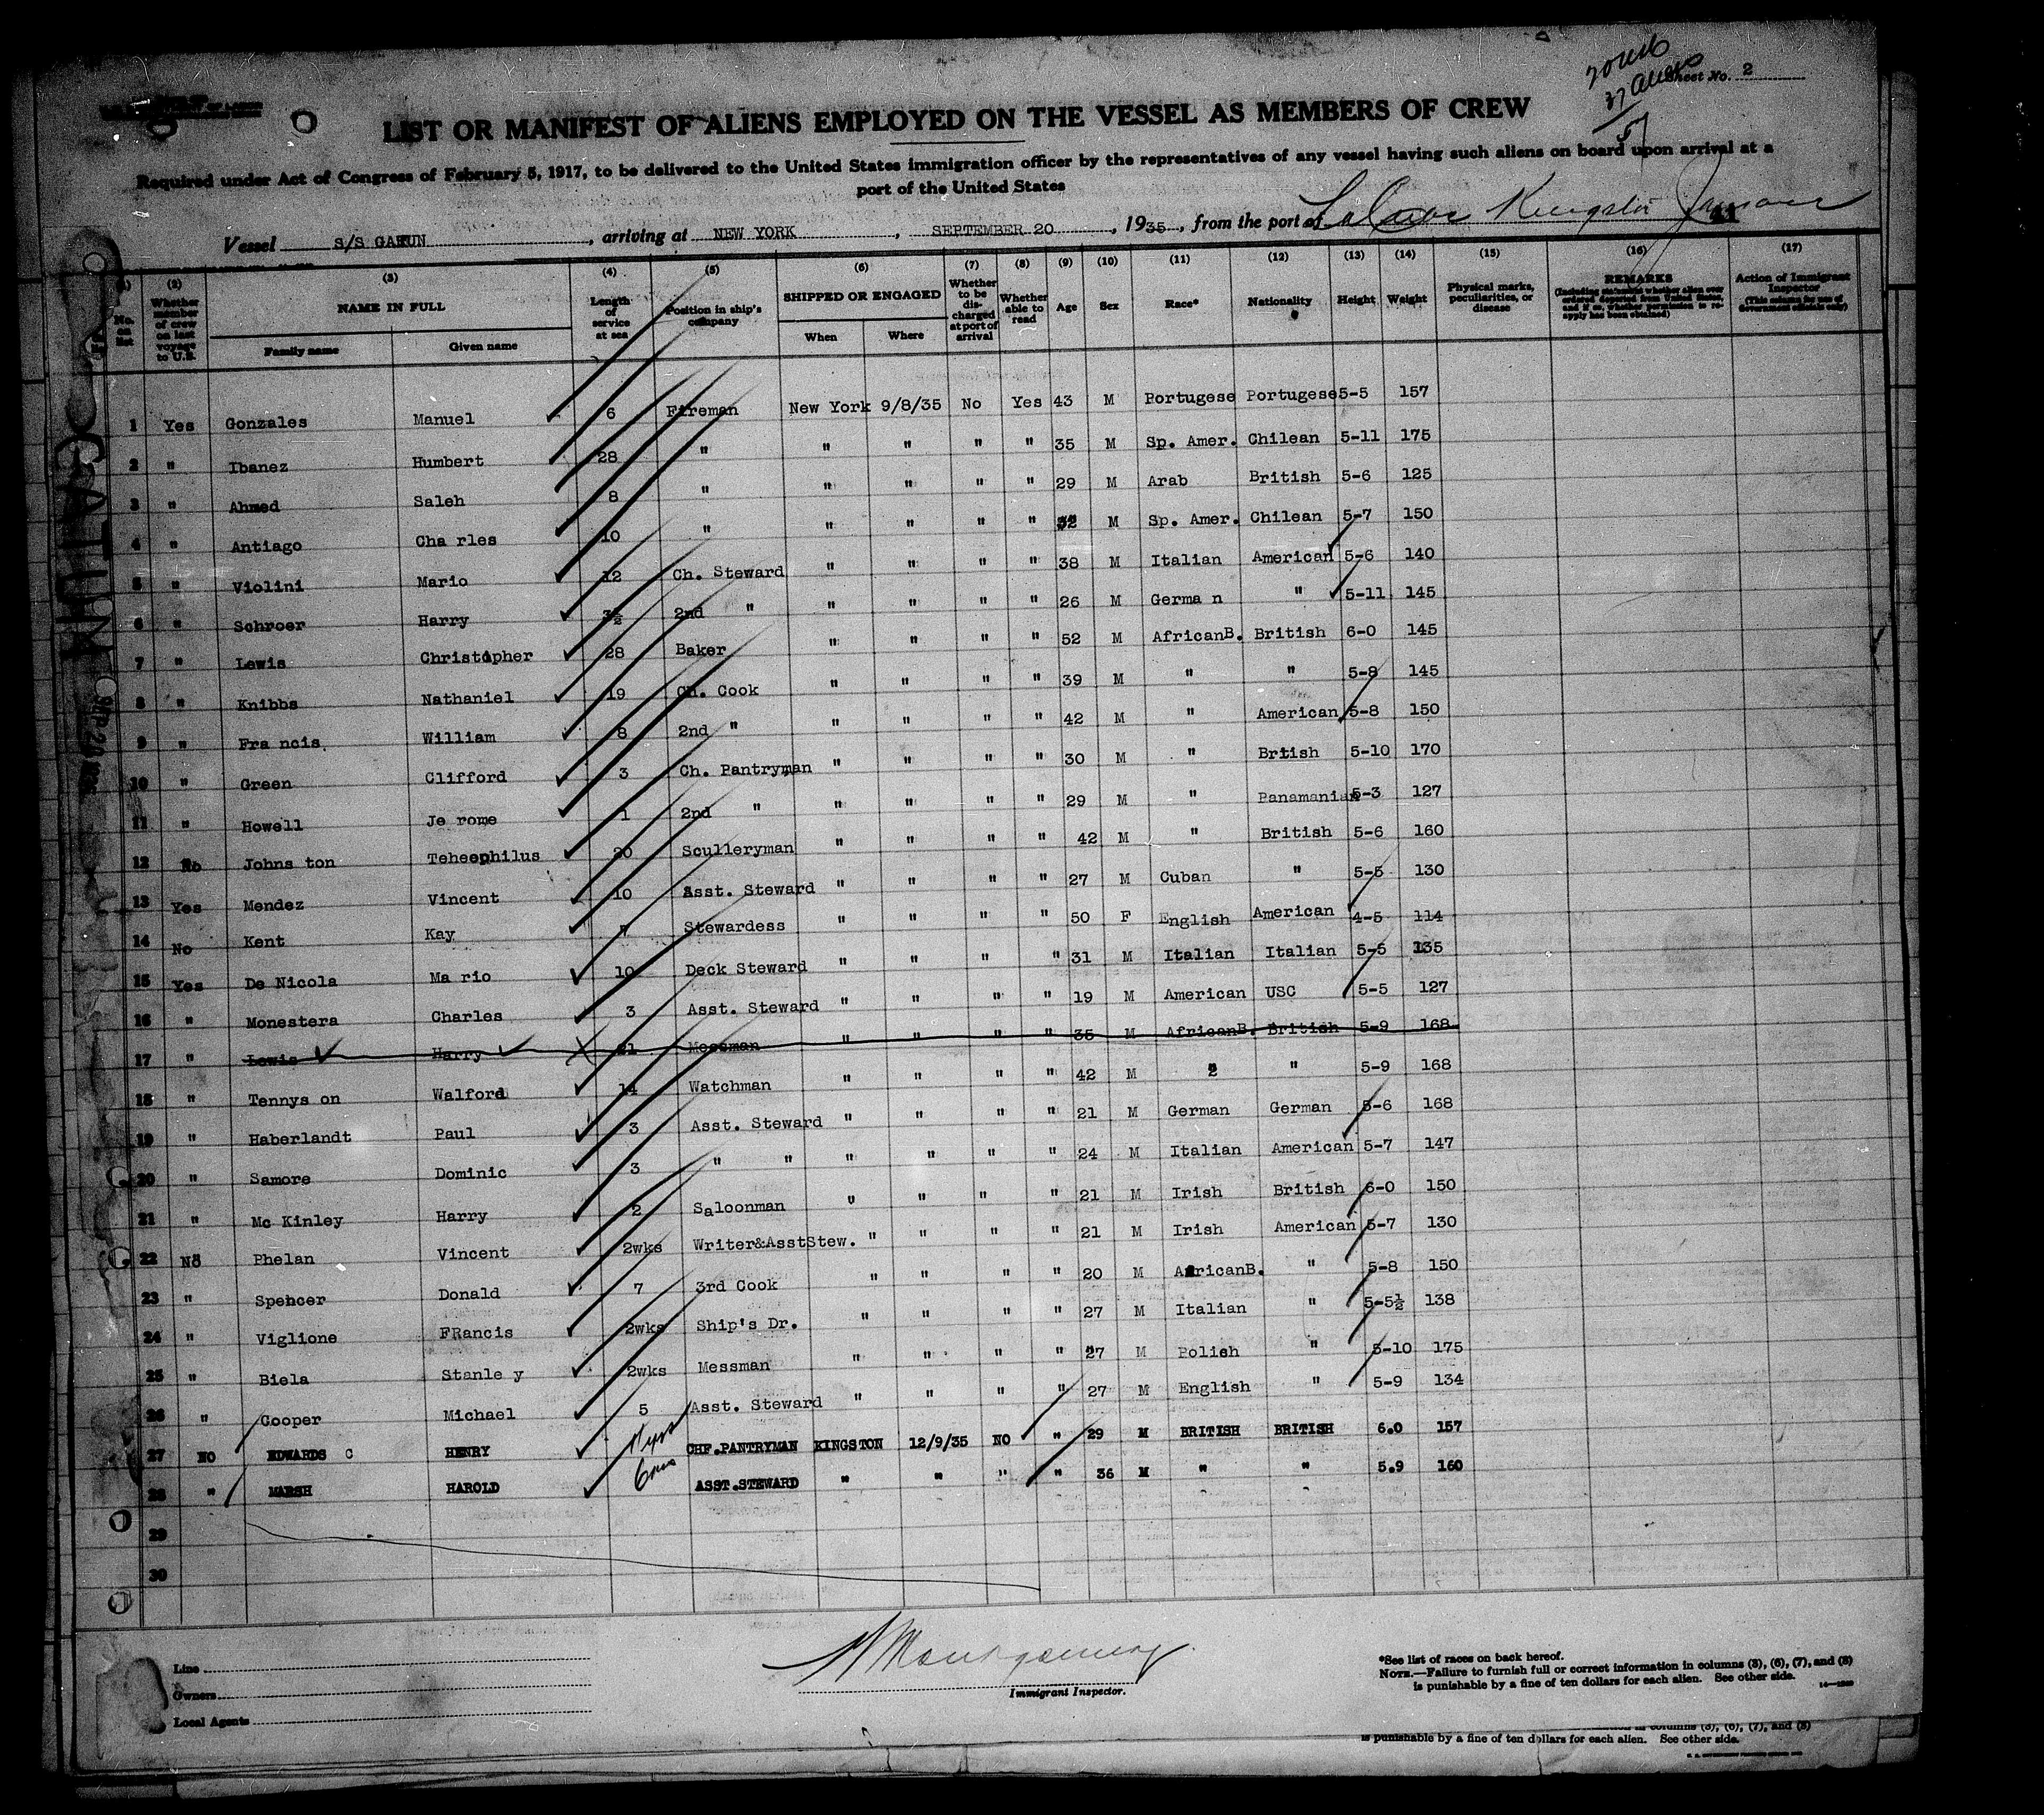 Sheet No. 2
LIST OR MANIFEST OF ALIENS EMPLOYED ON THE VESSEL AS MEMBERS OF CREW
Required under Act of Congress of February 5, 1917, to be delivered to the United States immigration officer by the representatives of any vessel having such aliens on board upon arrival at a
port of the United States
Vessel S/S GATUN, arriving at NEW YORK, SEPTEMBER 20, 1935, from the port of Kingston Jamaica
(2) (3) (4) (5) (6) (7) (8) (9) (10) (11) (12) (13) (14) (15) (16) (17)
No. on list Whether member of crew on last voyage to U.S. NAME IN FULL Family name Given name Length of service at sea Position in ship's company SHIPPED OR ENGAGED When Where Whether to be discharged at port of arrival Whether able to read Age Sex Race* Nationality Height Weight Physical marks, peculiarities, or disease REMARKS (Including statement whether alien ever ordered deported from United States, and if so, whether permission to reapply has been obtained) Action of Immigrant Inspector (This column for use of Government officials only)
1 Yes Gonzales Manuel 6 Fireman New York 9/8/35 No Yes 43 M Portugese Portugese 5-5 157
2 " Ibanez Humbert 28 " " " " " 35 M Sp. Amer. Chilean 5-11 175
3 " Ahmed Saleh 8 " " " " " 29 M Arab British 5-6 125
4 " Antiago Cha rles 10 " " " " " 32 M Sp. Amer. Chilean 5-7 150
5 " Violini Mario 12 Ch. Steward " " " " 38 M Italian American 5-6 140
6 " Schroer Harry 3½ 2nd " " " " " 26 M Germa n " 5-11 145
7 " Lewis Christopher 28 Baker " " " " 52 M AfricanB. British 6-0 145
8 " Knibbs Nathaniel 19 Ch. Cook " " " " 39 M " " 5-8 145
9 " Fra ncis William 8 2nd " " " " " 42 M " American 5-8 150
10 " Green Clifford 3 Ch. Pantryman " " " " 30 M " British 5-10 170
11 " Howell Je rome 1 2nd " " " " " 29 M " Panamanian 5-3 127
12 No Johns ton Teheophilus 20 Sculleryman " " " " 42 M " British 5-6 160
13 Yes Mendez Vincent 10 Asst. Steward " " " " 27 M Cuban " 5-5 130
14 No Kent Kay 7 Stewardess " " " " 50 F English American 4-5 114
15 Yes De Nicola Ma rio 10 Deck Steward " " " " 31 M Italian Italian 5-5 135
16 " Monestera Charles 3 Asst. Steward " " " " 19 M American USC 5-5 127
17 " Lewis Harry 21 Messman " " " " 35 M AfricanB. British 5-9 168
18 " Tennys on Walford 14 Watchman " " " " 42 M " " 5-9 168
19 " Haberlandt Paul 3 Asst. Steward " " " " 21 M German German 5-6 168
20 " Samore Dominic 3 " " " " " " 24 M Italian American 5-7 147
21 " Mc Kinley Harry 2 Saloonman " " " " 21 M Irish British 6-0 150
22 No Phelan Vincent 2wks Writer&AsstStew. " " " " 21 M Irish American 5-7 130
23 " Spencer Donald 7 3rd Cook " " " " 20 M AfricanB. " 5-8 150
24 " Viglione FRancis 2wks Ship's Dr. " " " " 27 M Italian " 5-5½ 138
25 " Biela Stanle y 2wks Messman " " " " 27 M Polish " 5-10 175
26 " Cooper Michael 5 Asst. Steward " " " " 27 M English " 5-9 134
27 NO EDWARDS C HENRY CHF.PANTRYMAN KINGSTON 12/9/35 NO " 29 M BRITISH BRITISH 6.0 157
28 " MARSH HAROLD 6mos ASST.STEWARD " " " " 36 M " " 5.9 160
29
30
GATUN
Line
Owners
Local Agents
Montgomery
Immigrant Inspector.
*See list of races on back hereof.
NOTE.—Failure to furnish full or correct information in columns (3), (6), (7), and (8)
is punishable by a fine of ten dollars for each alien. See other side.
columns (3), (6), (7), and (8)
is punishable by a fine of ten dollars for each alien. See other side.